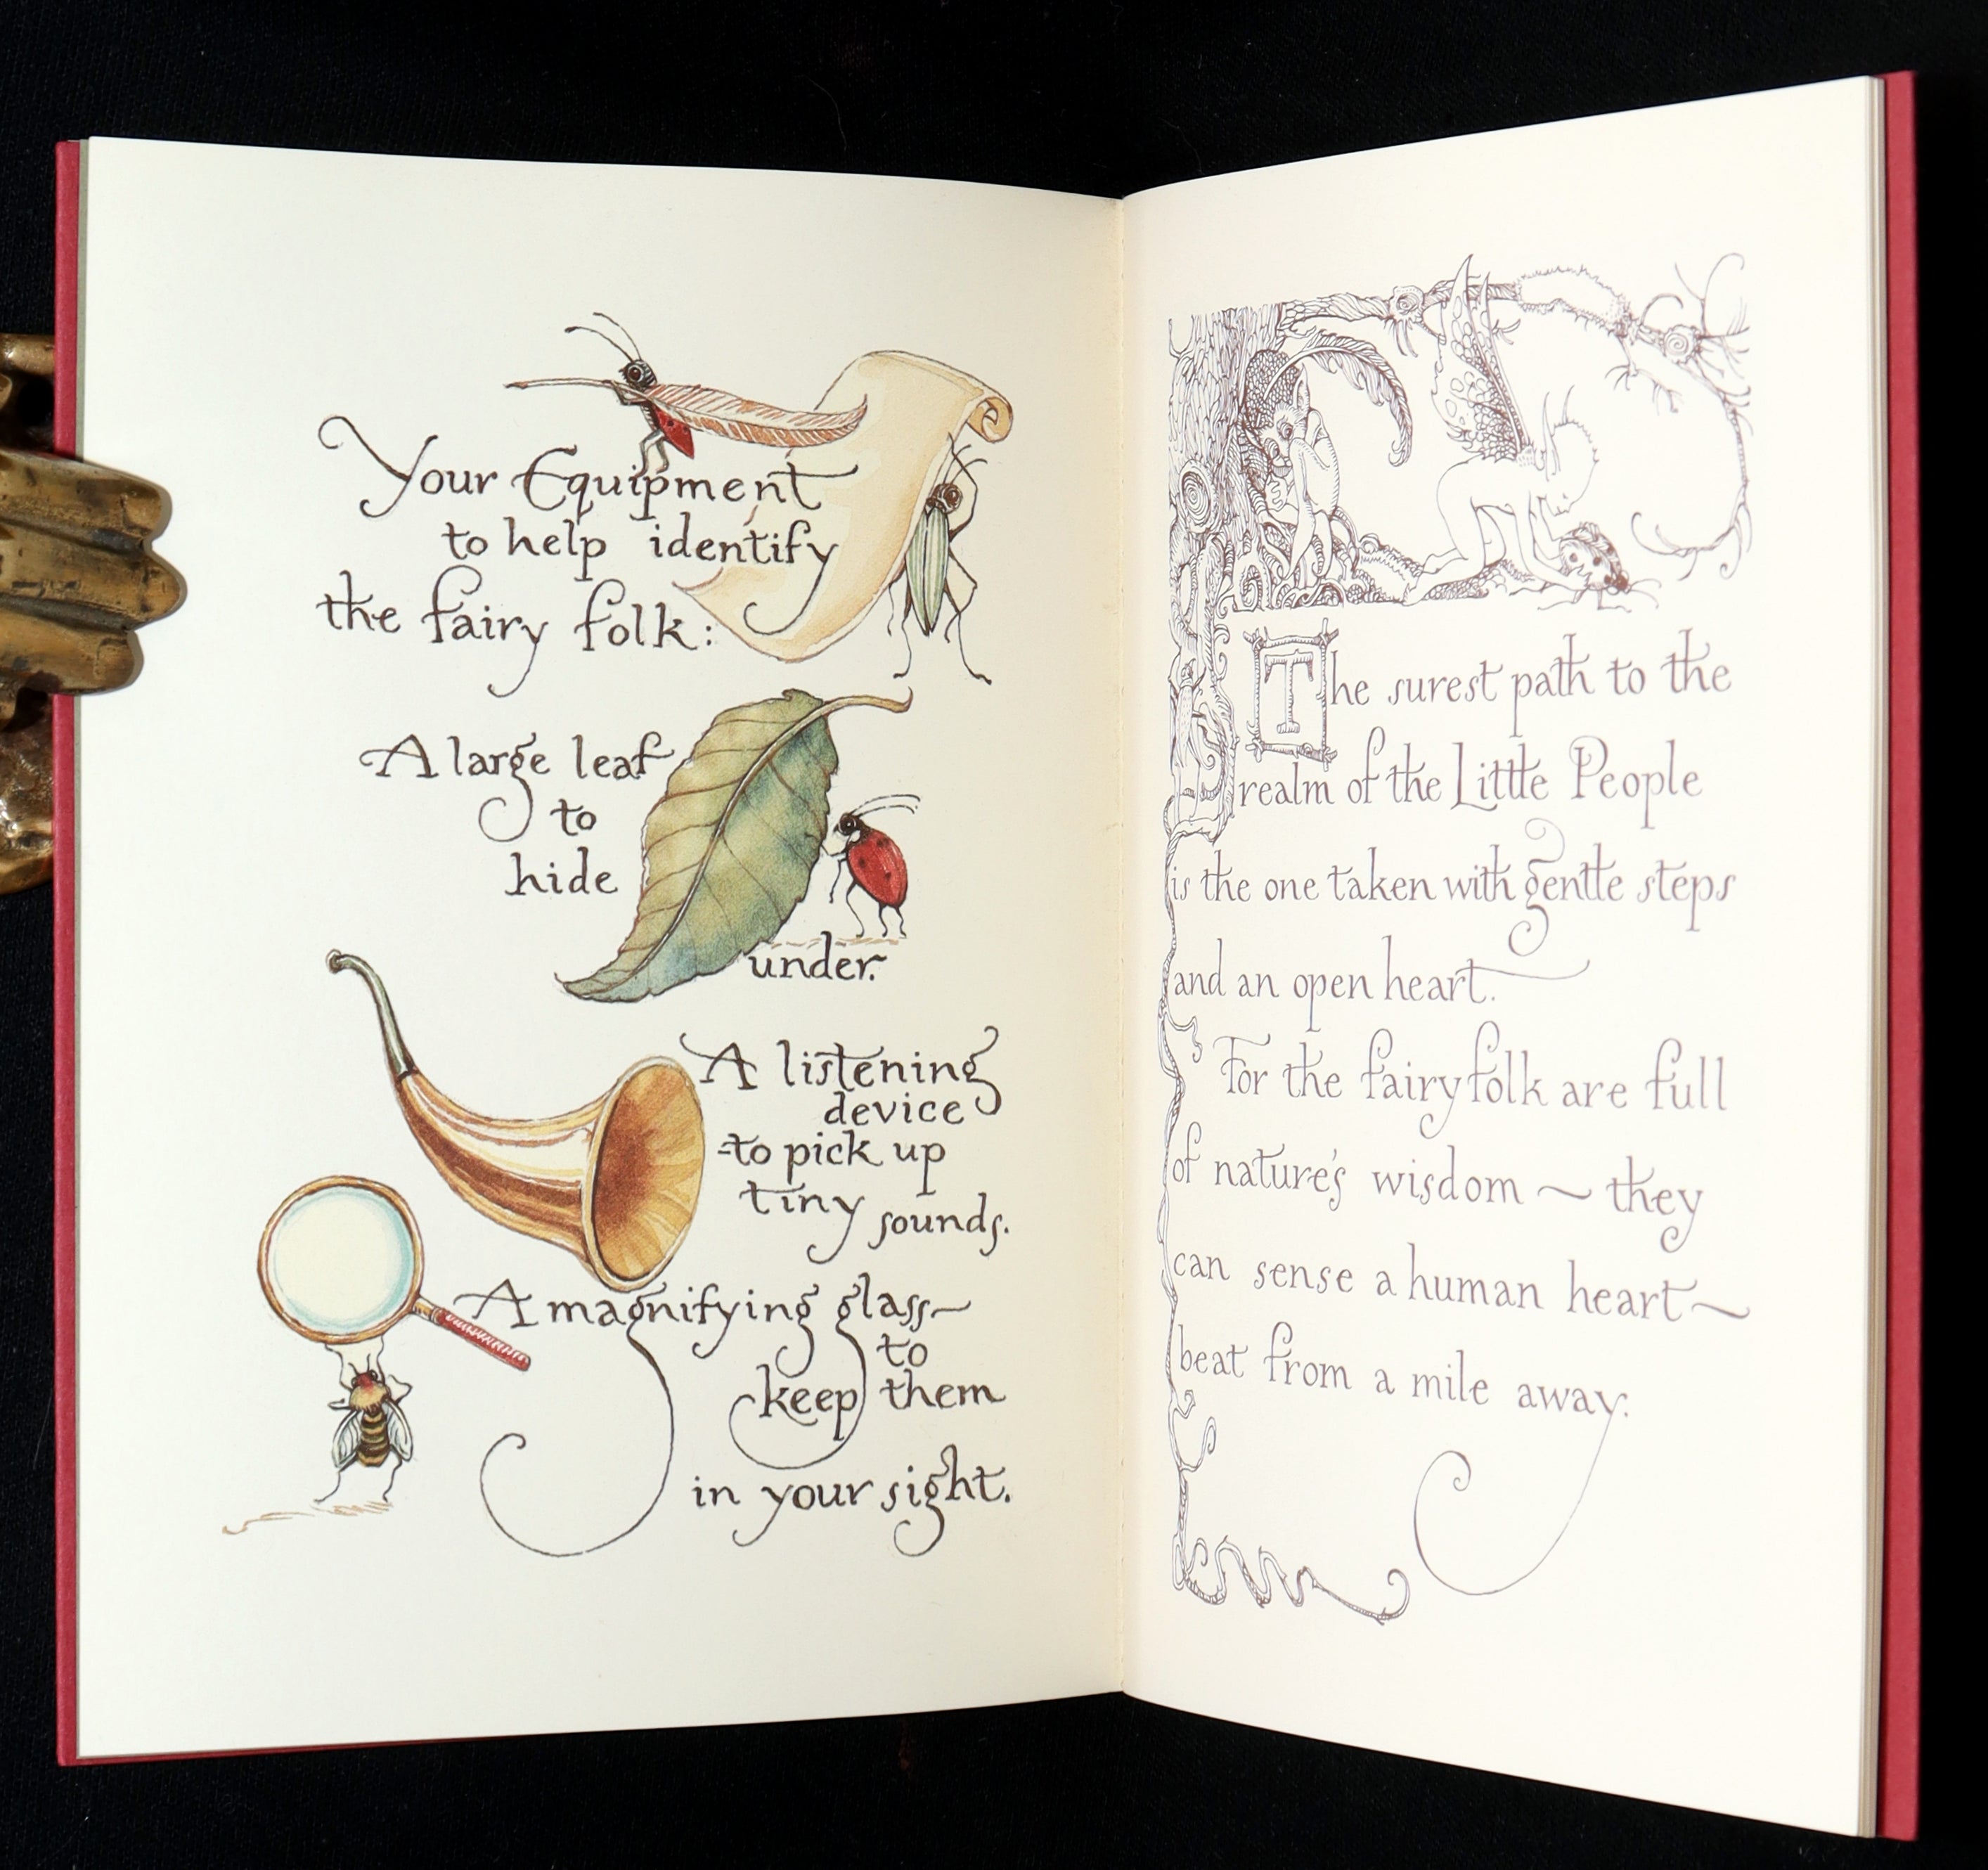 Your Equipment
to help identify
the fairy folk:
A large leaf
to
hide
under.
A listening
device
to pick up
tiny sounds.
A magnifying glass
to
keep them
in your sight.
The surest path to the
realm of the Little People
is the one taken with gentle steps
and an open heart.
For the fairy folk are full
of nature's wisdom ~ they
can sense a human heart~
beat from a mile away.